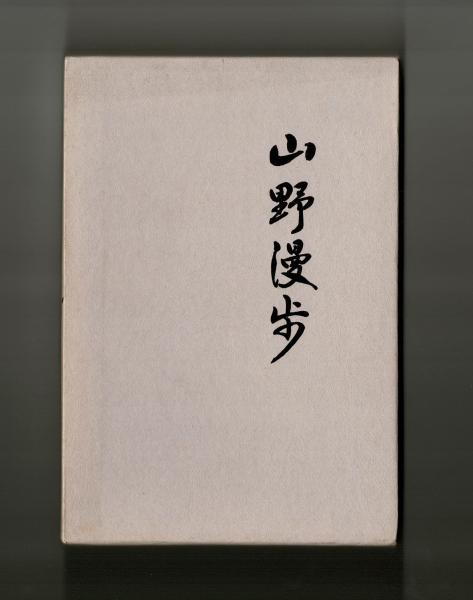 山野漫歩